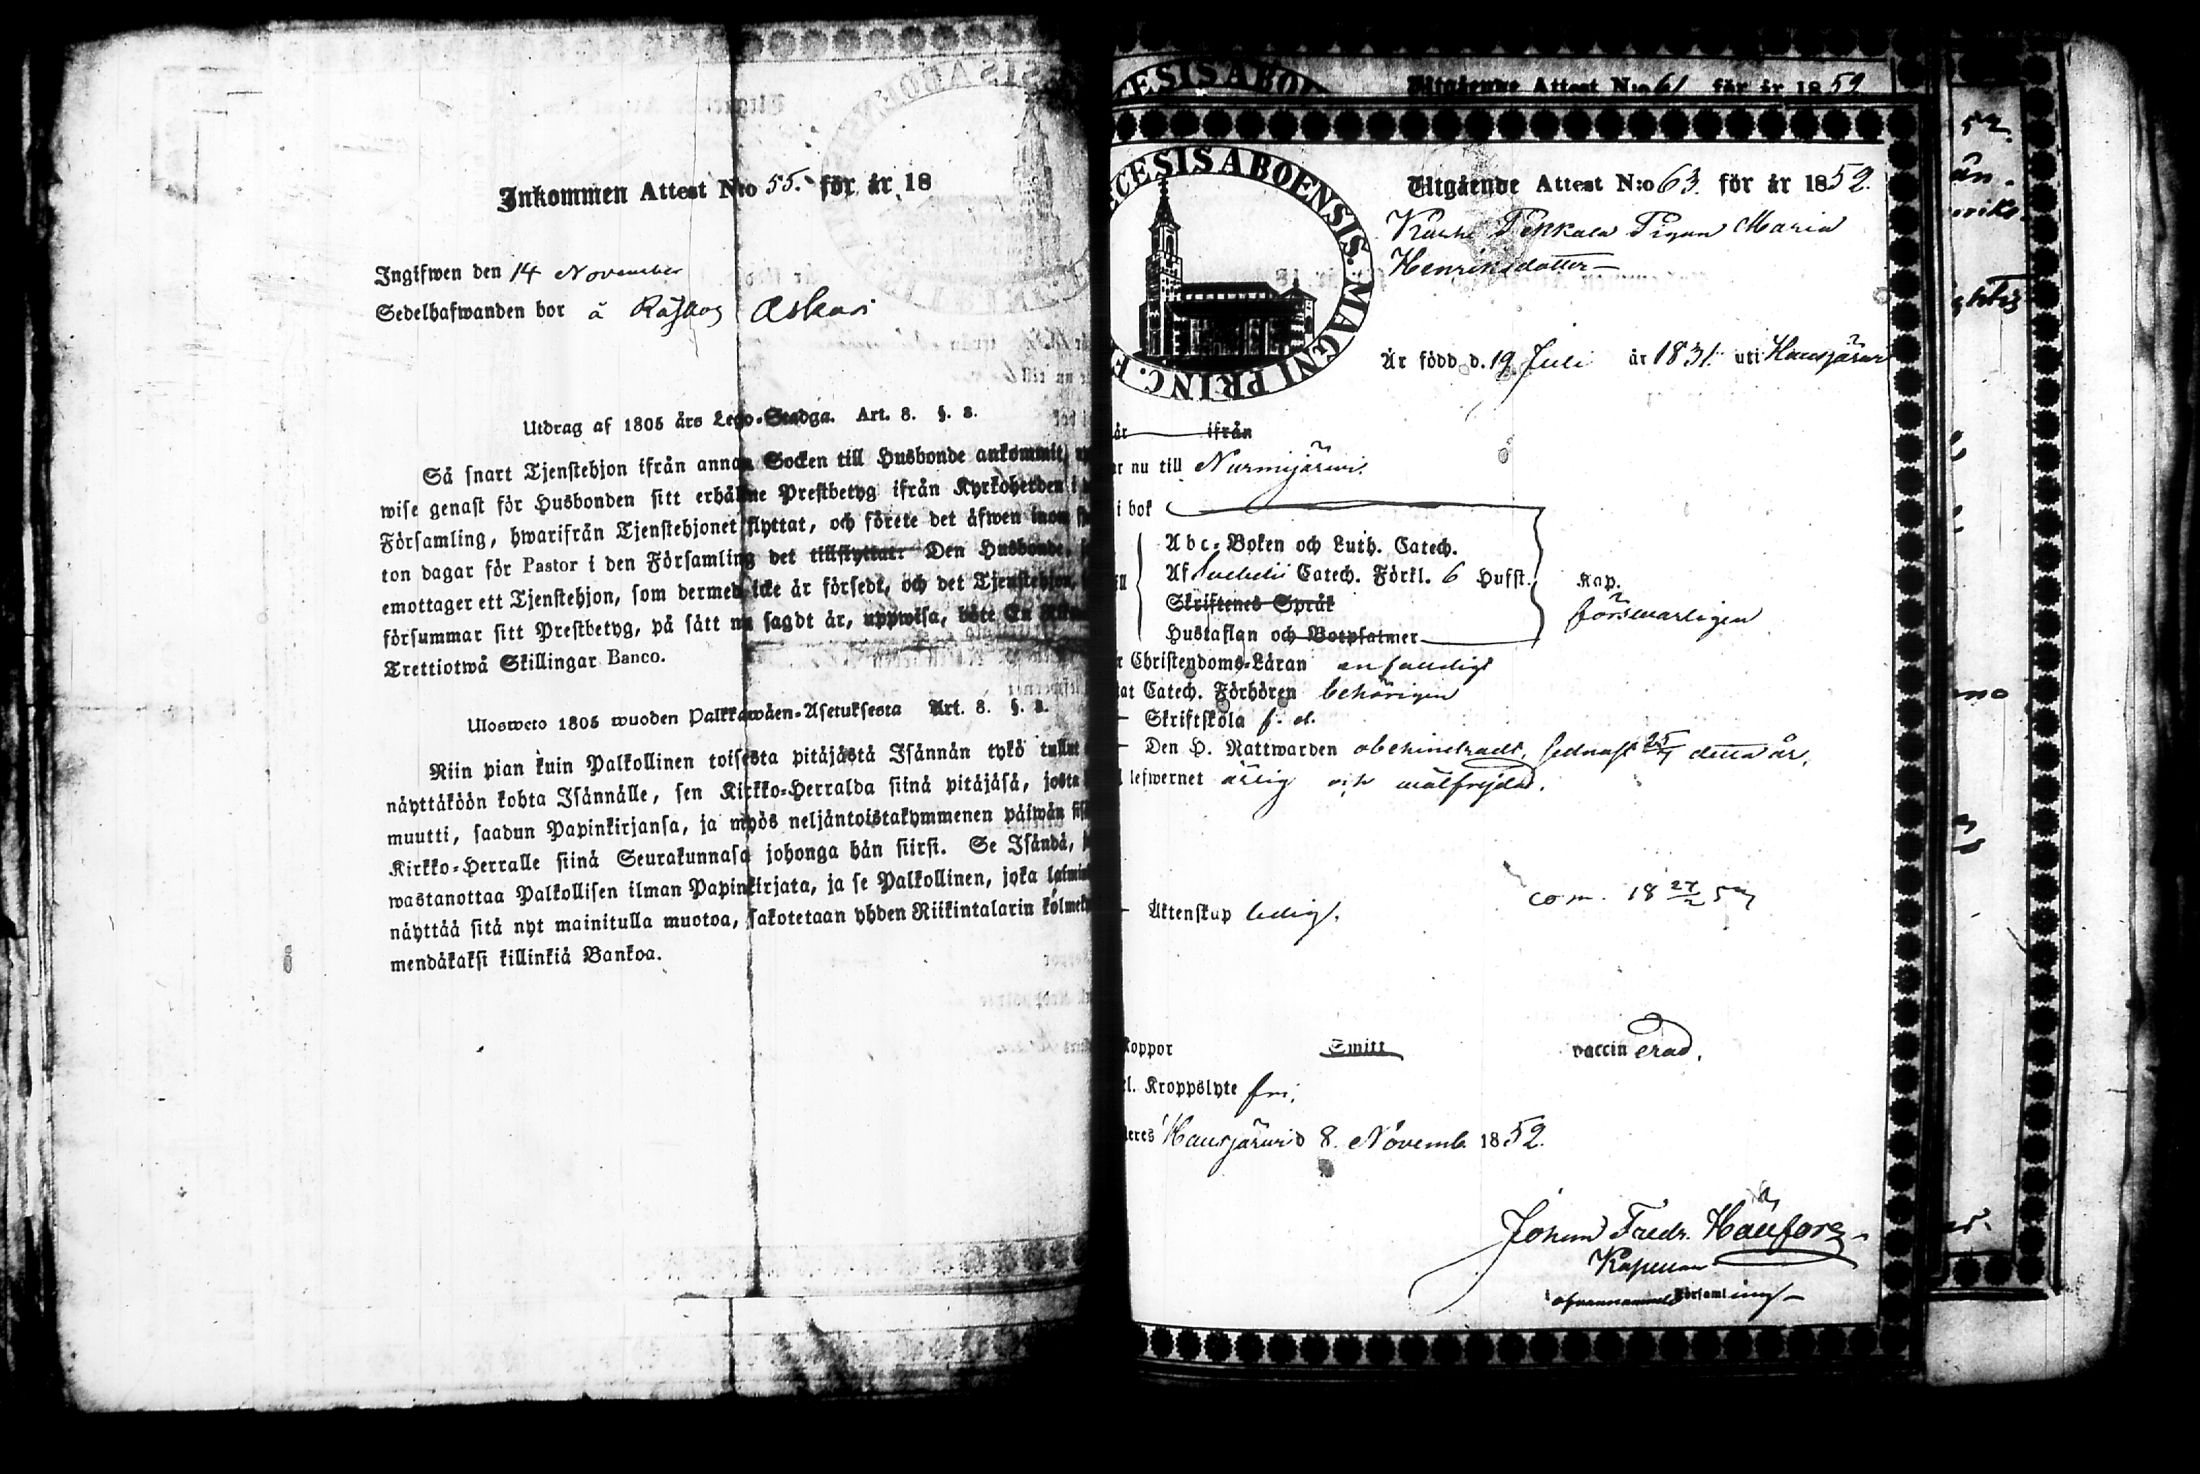 Inkommen Attest N:o 55. för år 18
Ingifwen den 14 November
Sedelhafwanden bor å Askari
Utdrag af 1805 års Lego-Stadga. Art. 8. §. 8.
Så snart Tjenstehjon ifrån annan Socken till Husbonde ankommit,
wise genast för Husbonden sitt erhållne Prestbetyg ifrån Kyrkoherden i
Församling, hwarifrån Tjenstehjonet flyttat, och förete det äfwen inom
ton dagar för Pastor i den Församling det tillflyttat: Den Husbonde,
emottager ett Tjenstehjon, som dermed icke är försedt, och det Tjenstehjon,
försummar sitt Prestbetyg, på sätt nu sagdt är, uppwisa, böte En
Trettiotwå Skillingar Banco.
Uloswcto 1805 wuoden Palkkawäen-Asetuksesta Art. 8. §. 8.
Niin pian kuin Palkollinen toisesta pitäjästä Isännän tykö tullut
näyttäköön kohta Isännälle, sen Kirkko-Herralda siinä pitäjäsä, josta
muutti, saadun Papinkirjansa, ja myös neljäntoistakymmenen päiwän
Kirkko-Herralle siinä Seurakunnasa johonga hän siirsi. Se Isändä,
wastanottaa Palkollisen ilman Papinkirjata, ja se Palkollinen, joka
näyttää sitä nyt mainitulla muotoa, sakotetaan yhden Riikintalarin
mendäkaksi killinkiä Bankoa.
Utgående Attest N:o 61 för år 1852
CESIS ABOENSIS. MAGNI PRINC. F
Utgående Attest N:o 63. för år 1852.
Pekkala Pigan Maria
Henriksdotter
Är född d. 19 Juli år 1831. uti Hausjärwi
år ifrån
nu till Nurmijärwi.
i bok
Abc-Boken och Luth. Catech.
Af Svebelii Catech. Förkl. 6 Hufst. Kap.
Skriftenes Språk
försvarligen
Hustaflan och Botpsalmer
Christendoms-Läran enfaldigt
Catech. Förhören behörigen
Skriftskola f. d.
Den H. Nattwarden obehindradt, sednast 25/7 detta år.
lefwernet ärlig och välfrejdad.
com. 18 27/2 5
Äktenskap ledig.
koppor Smitt vaccinerad.
Kroppslyte fri.
Hausjärwi d 8. Novemb. 1852.
Johan Fredr.
Kapellan
i ofvannämnde Församling